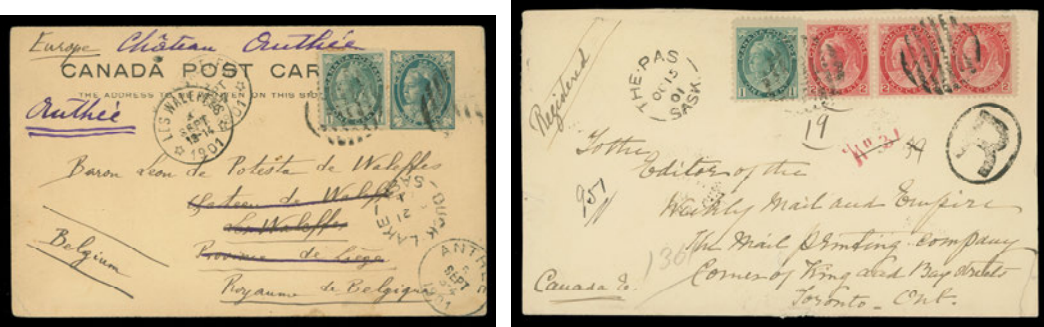 Europe Château Onthée
CANADA POST CAR
THE ADDRESS TO BE
ON THIS SIDE
Onthée
LES WALEFFES
SEPT
13-14
1901
Baron Léon de Potesta de Waleffes
Château de Waleffes
Les Waleffes
Province de Liège
Royaume de Belgique
Belgium
DUCK LAKE
SASK
21
ANTHEE
SEPT
1901
1
1
THE·PAS
OC 15
01
SASK
1
2
2
2
Registered
19
R
To the
Editor of the
951
Weekly Mail and Empire
The Mail Printing Company
136
Corner of King and Bay streets
Canada
Toronto - Ont.